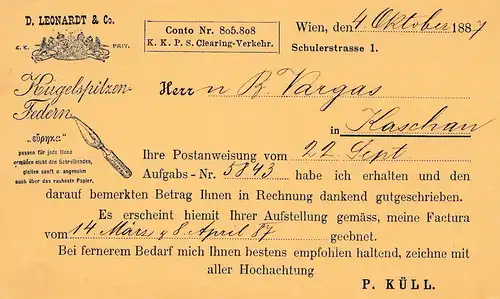 D. LEONARDT & Co.
K. K. PRIV.
Conto Nr. 805.808
K. K. P. S. Clearing-Verkehr.
Wien, den 4. Oktober 1887
Schulerstrasse 1.
Kugelspitzen-
Federn
„εὕρηκα"
passen für jede Hand
ermüden nicht den Schreibenden,
gleiten sanft u. angenehm
auch über das rauheste Papier.
Herrn B. Vargas
in Kaschau
Ihre Postanweisung vom 22 Sept
Aufgabs-Nr. 5843 habe ich erhalten und den
darauf bemerkten Betrag Ihnen in Rechnung dankend gutgeschrieben.
Es erscheint hiemit Ihrer Aufstellung gemäss, meine Factura
vom 14 März & 8 April 87 geebnet.
Bei fernerem Bedarf mich Ihnen bestens empfohlen haltend, zeichne mit
aller Hochachtung
P. KÜLL.